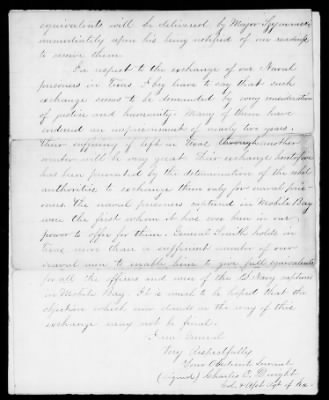 equivalents will be delivered by Major Szymanski
immediately upon his being notified of our readiness
to receive them.
In respect to the exchange of our Naval
prisoners in Texas, I beg leave to say that such
exchange seems to be demanded by every consideration
of justice and humanity. Many of them have
endured an imprisonment of nearly two years.
Their suffering if kept in Texas through another
number will be very great. Their exchange heretofore
has been prevented by the determination of the rebel
authorities to exchange them only for naval pris-
oners. The naval prisoners captured in Mobile Bay
were the first whom it has ever been in our
power to offer for them. General Smith holds in
Texas more than a sufficient number of our
naval men to enable him to give full equivalents
for all the officers and men of the Navy captured
in Mobile Bay. It is much to be hoped that the
objection which now stands in the way of this
exchange may not be final.
I am General
Very Respectfully
Your Obedient Servant
(Signed) Charles C. Dwight
Col. & Agt of Ex.